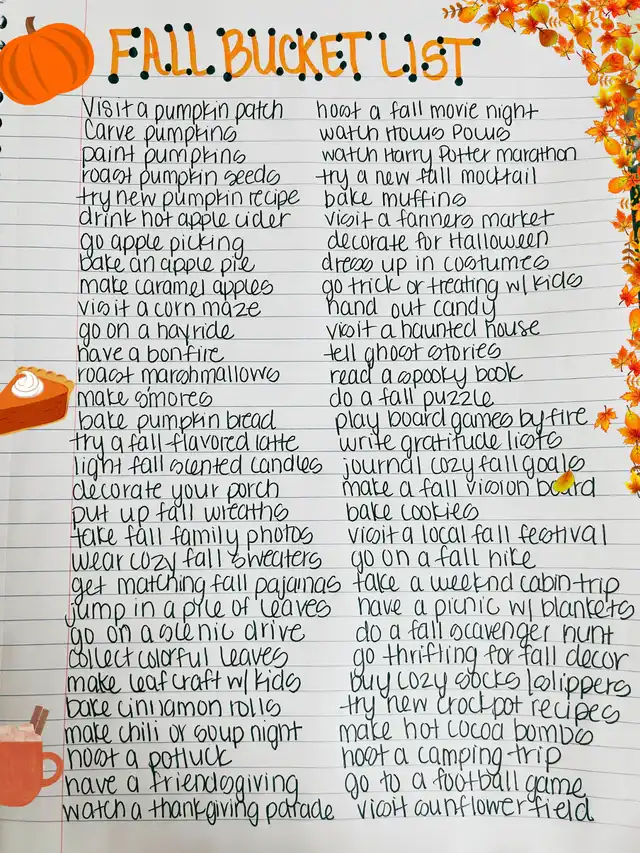 FALL BUCKET LIST
visit a pumpkin patch
carve pumpkins
paint pumpkins
roast pumpkin seeds
try new pumpkin recipe
drink hot apple cider
go apple picking
bake an apple pie
make caramel apples
visit a corn maze
go on a hayride
have a bonfire
roast marshmallows
make s'mores
bake pumpkin bread
try a fall flavored latte
light fall scented candles
decorate your porch
put up fall wreaths
take fall family photos
wear cozy fall sweaters
get matching fall pajamas
jump in a pile of leaves
go on a scenic drive
collect colorful leaves
make leaf craft w/ kids
bake cinnamon rolls
make chili or soup night
host a potluck
have a friendsgiving
watch a thankgiving parade
host a fall movie night
watch Hocus Pocus
watch Harry Potter marathon
try a new fall mocktail
bake muffins
visit a farmers market
decorate for Halloween
dress up in costumes
go trick or treating w/ kids
hand out candy
visit a haunted house
tell ghost stories
read a spooky book
do a fall puzzle
play board games by fire
write gratitude lists
journal cozy fall goals
make a fall vision board
bake cookies
visit a local fall festival
go on a fall hike
take a weeknd cabin trip
have a picnic w/ blankets
do a fall scavenger hunt
go thrifting for fall decor
buy cozy socks/slippers
try new crockpot recipes
make hot cocoa bombs
host a camping trip
go to a football game
visit sunflower field